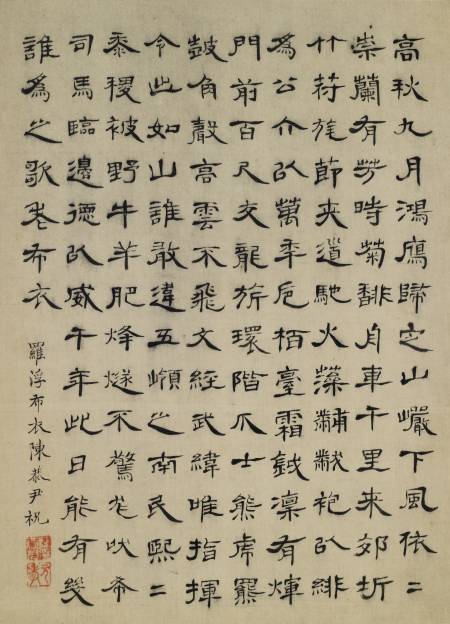 高秋九月鴻鴈歸之山巖下風依二
崇蘭有芳時菊馡舟車千里來郊圻
竹苻旄節夾道馳火藻黼黻袍以緋
為公介以萬年卮栢臺霜鉞凜有煇
門前百尺交龍旂環階爪士熊虎羆
鼓角聲高雲不飛文經武緯唯指揮
令此如山誰敢違五嶺之南民熙二
黍稷被野牛羊肥烽燧不驚尨吠希
司馬臨邊德以威千年此日能有幾
誰為之歌老布衣
羅浮布衣陳恭尹祝